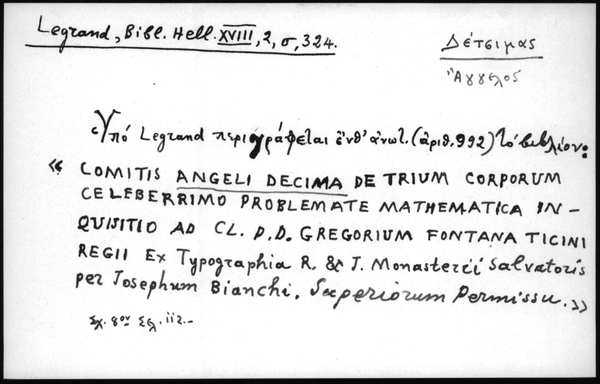 Legrand, Bibl. Hell. XVIII, 2, σ, 324.
Δέτσιμας
Ἄγγελος
Ὑπό Legrand περιγράφεται ἔνθ' ἀνωτ. (ἀριθ. 992) τό βιβλίον:
« COMITIS ANGELI DECIMA DE TRIUM CORPORUM
CELEBERRIMO PROBLEMATE MATHEMATICA IN-
QUISITIO AD CL. D.D. GREGORIUM FONTANA TICINI
REGII Ex Typographia R. & I. Monasterii Salvatoris
per Josephum Bianchi. Superiorum Permissu. »
Σχ. 8ον Σελ. 112.-